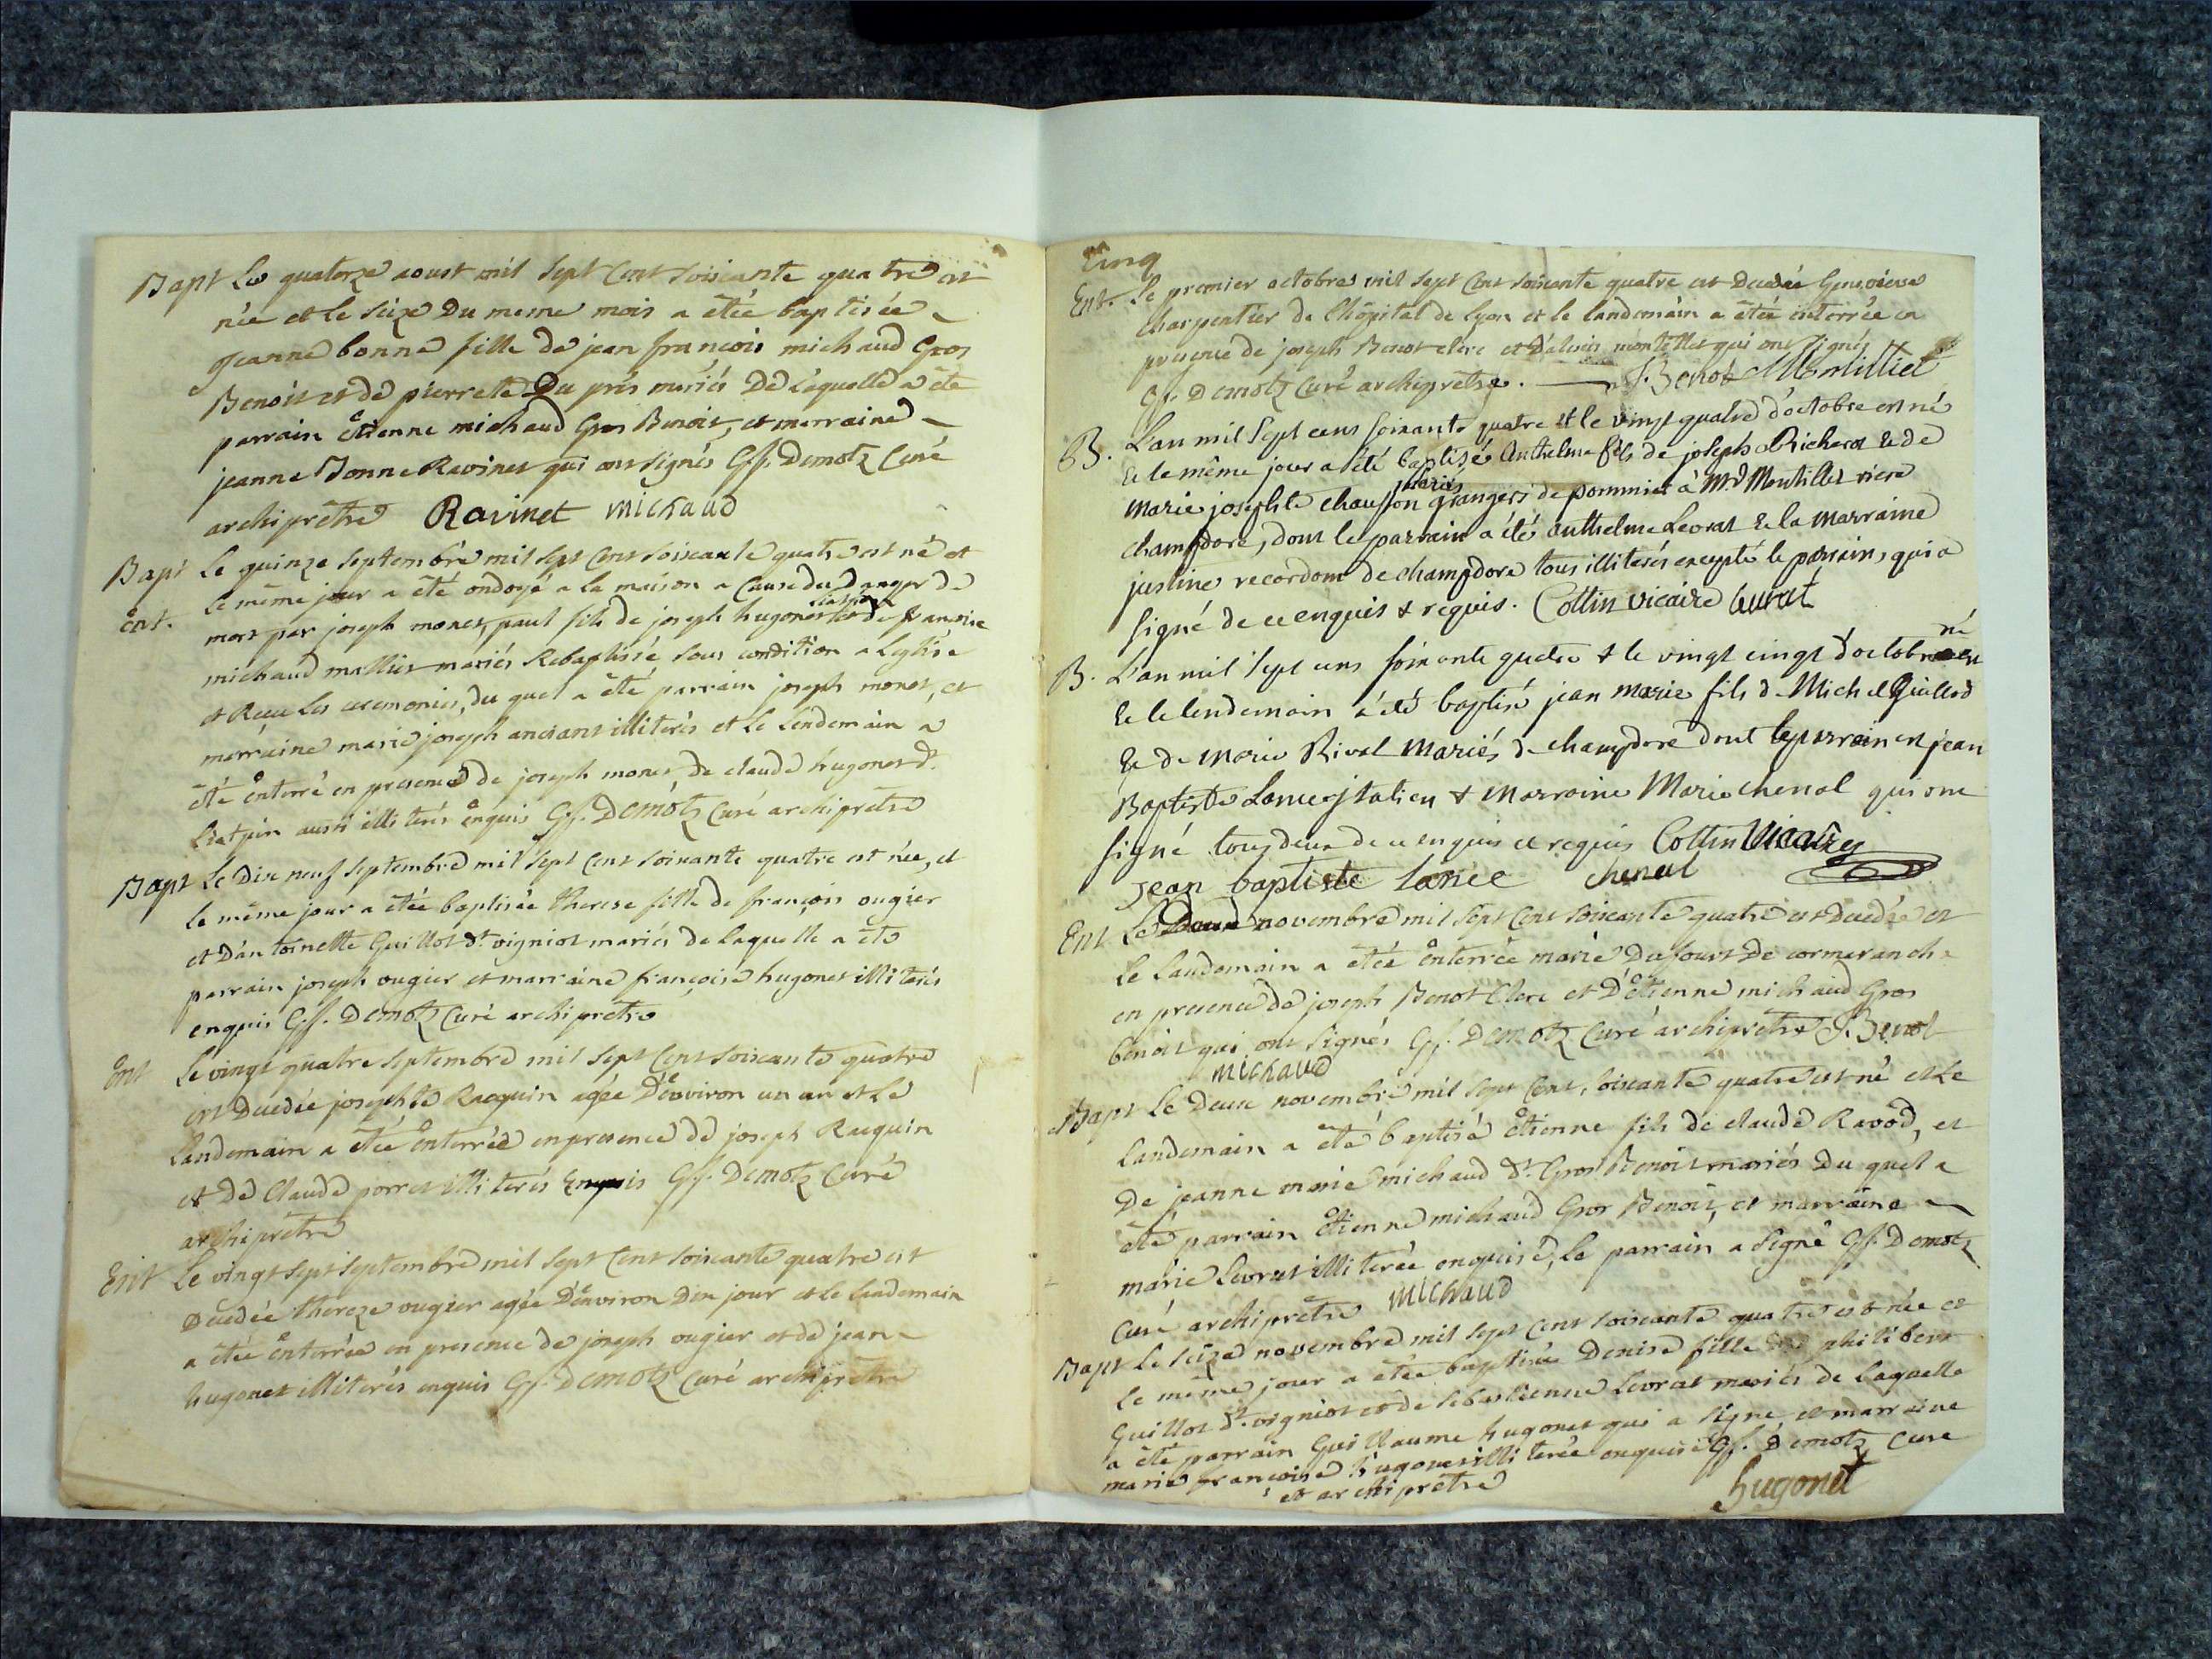 Bapt Le quatorze aoust mil sept cent soiscante quatre est
née et le seize du meme mois a étée baptisée
jeanne bonne fille de jean françois michaud Gros
Benoit et de pierrete Du prés mariés De laquelle a été
parrain étienne michaud Gros Benoit, et marraine
jeanne Bonne Ravinet qui ont signés Gf. Demotz Curé
archiprêtre Ravinet michaud
Bapt Le quinze septembre mil sept cent soiscante quatre est né et
le même jour a été ondoyé a la maison a Cause du Danger de
Ent. mort par joseph monet, paul fils de joseph hugonet et de francoise
michaud mallier mariés Rebaptissé sous condition a Leglise
et Reçu les ceremonies, du quel a été parrain joseph monet, et
marraine marie joseph anciant illiterés et le Lendemain a
été enterré en presence de joseph monet, de claude hugonet dt.
Liatpin aussi illiterés enquis Gf. Demotz Curé archiprêtre
Bapt Le Dix neuf septembre mil sept cent soixante quatre est née, et
le même jour a étée baptisée therese fille de françois ougier
et D'antoinette Guillot dt. vigniot mariés de laquelle a été
parrain joseph ougier et marraine françoise hugonet illiterés
enquis Gf. Demotz Curé archiprêtre
Ent Le vingt quatre septembre mil sept cent soiscante quatre
est Decedée josephte Racquin agée D'environ un an et Le
landemain a étée enterrée en presence de joseph Racquin
et De Claude porret illiterés Enquis Gf. Demotz Curé
archiprêtre
Ent Le vingt sept septembre mil sept cent soiscante quatre est
Decedée thereze ougier agée D'environ Dix jour et le landemain
a étée enterrée en presence de joseph ougier et de jean
hugonet illiterés enquis Gf. Demotz Curé archiprêtre
Cinq
Ent. Le premier octobre mil sept cent soiscante quatre est Decedée Genevieve
charpentier de l'hôpital de lyon et le landemain a étée enterrée en
presence de joseph Benot clerc et D'alexis montillet qui ont signés
Gf. Demotz Curé archiprêtre. J. Benot Montilliet
B. L'an mil sept cens soixante quatre et le vingt quatre d'octobre est né
& le même jour a été baptisé Anthelme fils de joseph Richerot & de
mariés
marie josephte chausson grangers de pommier à Mr. Montillet riere
champdore, dont le parrain a été anthelme Levrat & la marraine
justine recordon de champdore tous illiterés excepté le parrain, qui a
signé de ce enquis & requis. Collin vicaire Levrat
né
B. L'an mil sept cens soixante quatre & le vingt cinq d'octobre est
& le lendemain a été baptisé jean marie fils de Michel Guillod
& de Marie Rival Mariés de champdore dont le parrain est jean
Baptiste Lance italien & Marraine Marie chenal qui ont
signé tous deux de ce enquis et requis Collin Vicaire
Jean baptiste lance chenal
Ent Le Deux novembre mil sept cent soiscante quatre est decedée et
le landemain a étée enterrée marie Dufour De cormaranche
en presence de joseph Benot Clerc et D'étienne michaud Gros
benoit qui ont signés Gf. Demotz Curé archiprêtre J. Benot
michaud
Bapt Le Deux novembre mil sept cent, soiscante quatre est né et Le
landemain a été baptisé étienne fils de claude Ravod, et
De jeanne marie michaud dt. Gros Benoit mariés Du quel a
été parrain étienne michaud Gros Benoit, et marraine
marie Levrat illiterée enquise, le parrain a signé Gf. Demotz
Curé archiprêtre michaud
Bapt Le seize novembre mil sept cent soiscante quatre est née et
le même jour a étée baptisée Denise fille de philibert
Guillot dt. vigniot et de sebastienne Levrat mariés de laquelle
a été parrain Guillaume hugonet qui a signé, et marraine
marie françoise hugonet illiterée enquise Gf. Demotz Curé
et archiprêtre hugonet